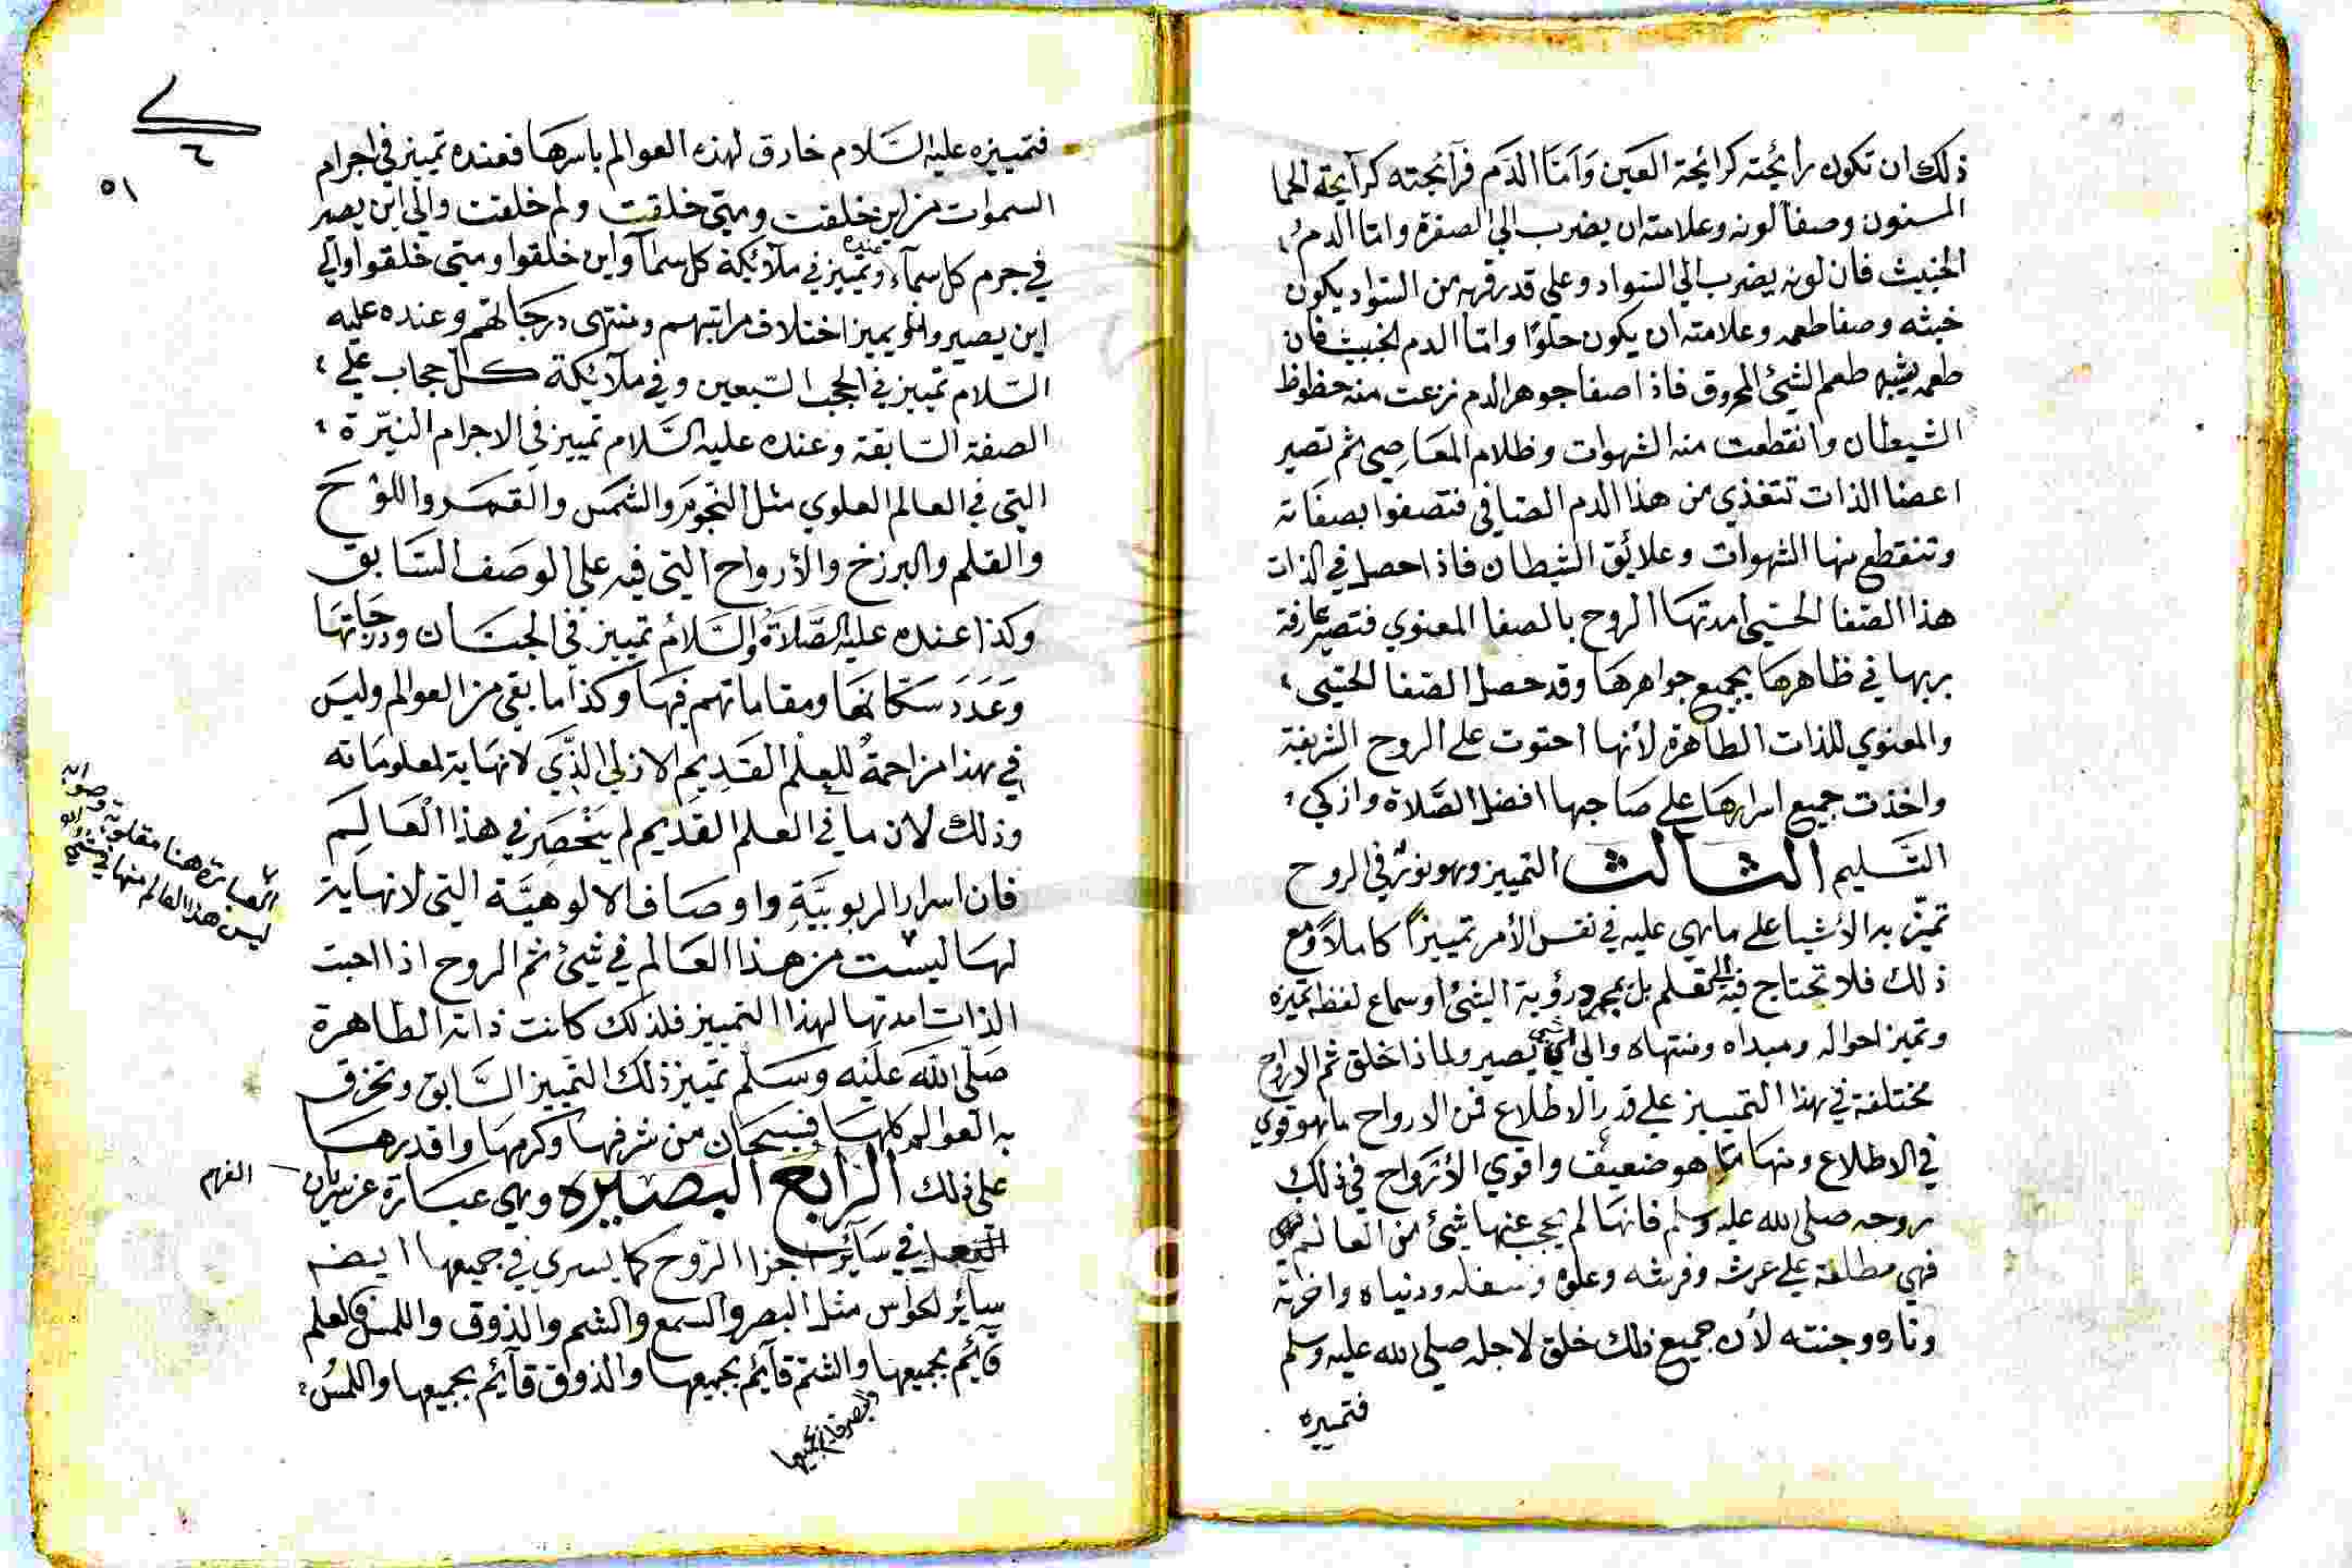 ذلك ان تكون رائحته كرائحة العجين وَاَمّا الدَم فرآئحته كرآيحة الحما
المسنون وصفا لونه وعلامته ان يضرب الي الصفرة واما الدم
الخبيث فان لونه يضرب الي السواد وعلي قدر قربه من السواد يكون
خبثه وصفا طعمه وعلامته ان يكون حلوًا واما الدم الخبيث فان
طعمه يشبه طعم الشئ المحروق فاذا صفا جوهر الدم نزعت منه حظوظ
الشيطان وانقطعت منه الشهوات وظلام المعَاصِي ثم تصير
اعضا الذات تتغذي من هذا الدم الصافي فتصفوا بصفاته
وتنقطع منها الشهوات وعلائق الشيطان فاذا حصل في الذات
هذا الصفا الحسي امدتها الروح بالصفا المعنوي فتصير عارفة
بربها في ظاهرهَا بجميع جواهرهَا وقد حصل الصفا الحسي
والمعنوي للذات الطاهرة لأنها احتوت علي الروح الشريفة
واخذت جميع اسرارهَا علي صَاحبها افضل الصَّلاة وازكي
التَسليم الثالث التمييز وهو نورٌ في الروح
تميّز به الأشيا علي ما هي عليه في نفس الأمر تمييزاً كاملاً ومع
ذلك فلا تحتاج فيه الي تعلم بل بمجرد رؤية الشئ او سماع لفظه تميزه
وتميز احواله ومبداه ومنتهاه والي اي شي يصير ولماذا خلق ثم الارواح
مختلفة في هذا التمييز علي قدر الاطلاع فمن الارواح ما هو قوي
في الاطلاع ومنها ما هو ضعيف واقوي الأرْوَاح في ذلك
روحه صلي الله عليه وسلم فانها لم يحجب عنها شئ من العالم
فهي مطلعة علي عرشه وفرشه وعلوه وسفله ودنياه واخراته
وناره وجنته لأن جميع ذلك خلق لاجله صلي الله عليه وسلم
فتميزه
٥١
فتمييزه عليه السَلام خارق لهذه العوالم باسرهَا فعنده تمييز في اجرام
السموات من اين خلقت ومتي خلقت ولم خلقت والي اين يصير
في جرم كل سمآء وعنده تمييز في ملآئكة كل سمآ واين خلقوا ومتي خلقوا والي
اين يصيروا ويميز اختلاف مراتبهم ومنتهي درجاتهم وعنده عليه
السَلام تمييز في الحجب السّبعين وفي ملآئكة كل حجاب علي
الصفة السَابقة وعنده عليه السَّلام تمييز في الاجرام النيّرة
التي في العالم العلوي مثل النجوم والشمس والقمر واللوْح
والقلم والبرزخ والأرواح التي فيه علي الوصَف السَابق
وكذا عنده عليه الصَّلاَةُ والسَّلامُ تمييز في الجنَان ودرجَاتهَا
وَعَدَدَ سَكَّانهَا ومقاماتهم فيهَا وكذا ما بقي من العوالم وليسَ
في هذا مزاحمةٌ للعِلْم القَدِيمِ الازلي الذَّي لا نهاية لمعلوماته
وذلك لان ما في العلم القديم لم يَنْحَصِر في هذا الْعَالَمِ
فان اسرار الربوبيَّةِ واوصَاف الالوهيَّة التي لا نهاية
لهَا ليست من هذا العَالم في شئ ثم الروح اذا احبت
الذات امدتها لهذا التمييز فلذلك كانت ذاته الطاهرة
صَلّي اللّه عَلَيْه وَسَلّم تمييز ذلك التمييز السَّابق وتخرق
به العوالم كلهَا فسبحَان من شرفهَا وكرمهَا واقدرهَا
علي ذلك الرَابع البَصيره وهي عبارة عن سريان
الفهم
في سَآئر اجزا الروح كما يسري في جميعها ايضا
سآئر الحواس مثل البصر والسمع والشم والذوق واللمس فالعلم
قآئم بجميعها والشم قآئم بجميعها والذوق قآئم بجميعها واللمس
والبصر قآئم بجميعها
العبارة هنا مقلوبة وصوابه
ليس هذا العالم منها في شئ